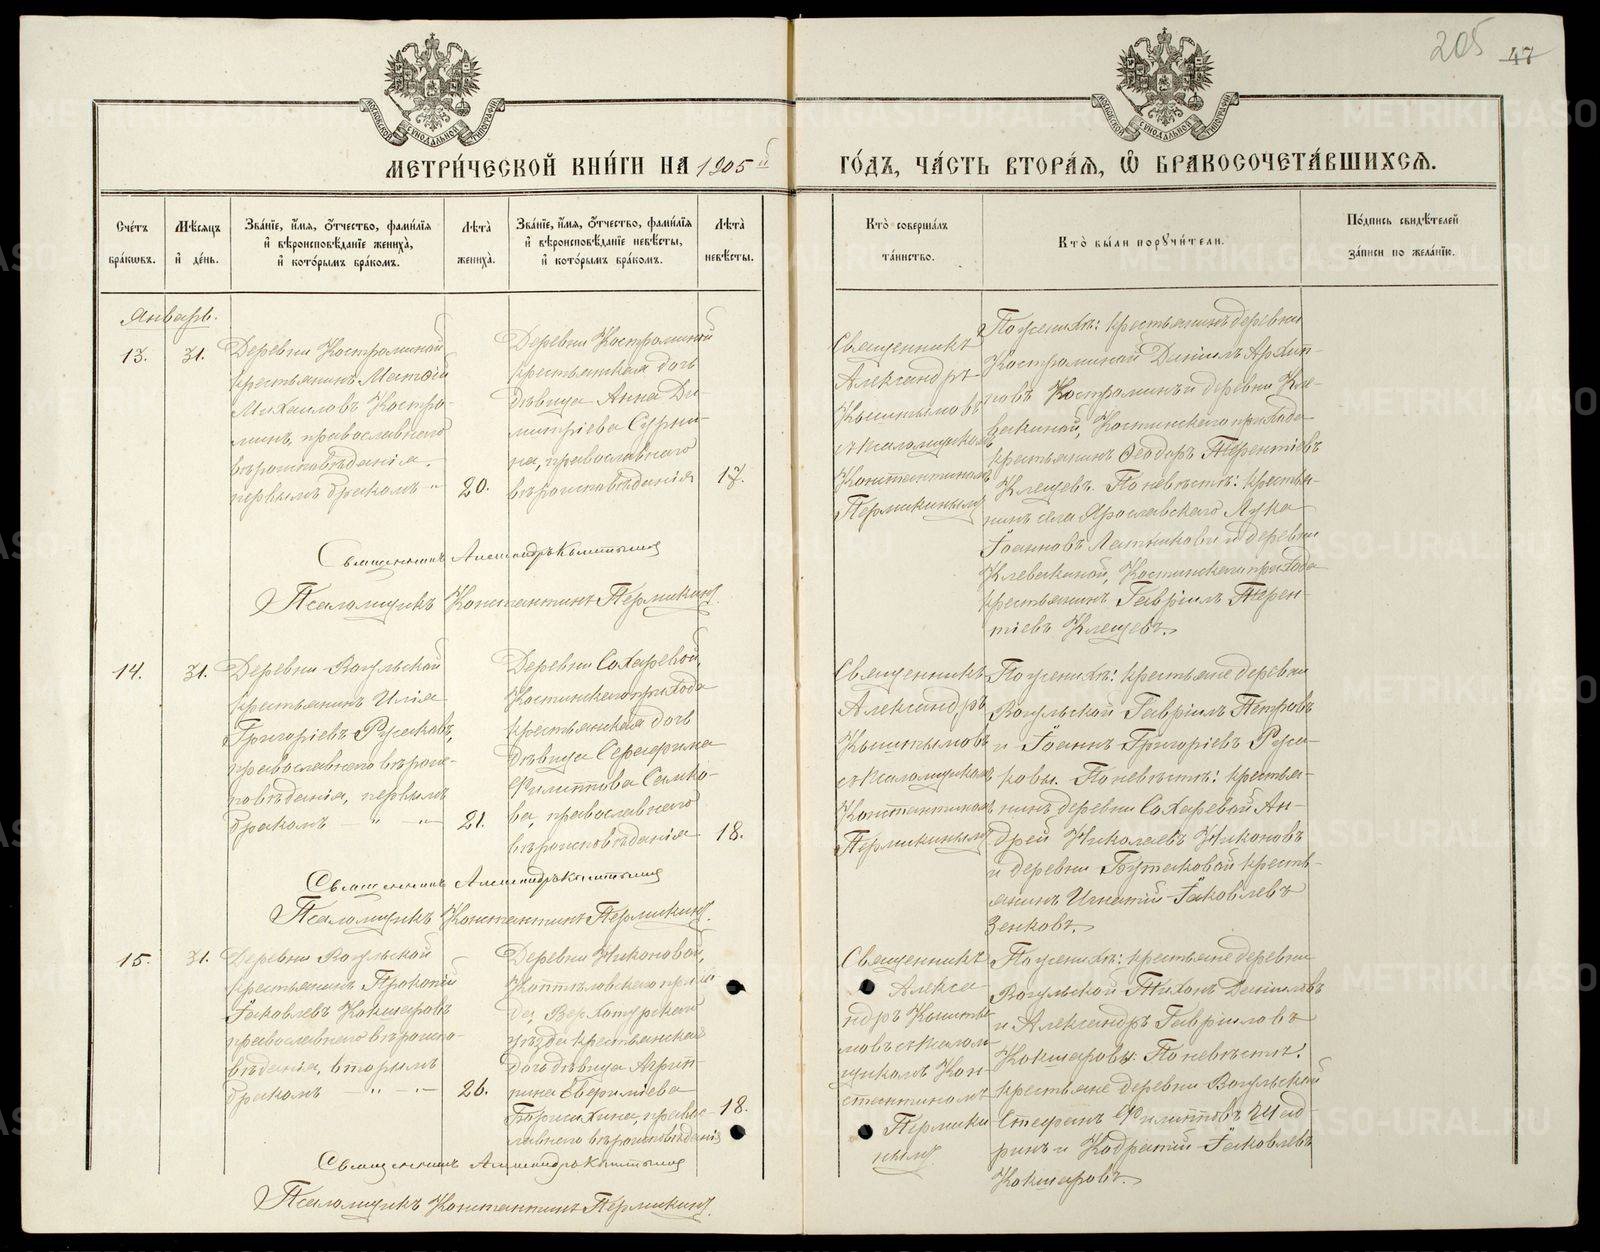 205 47
МОСКОВСКОЙ СѴНОДАЛЬНОЙ ТИПОГРАФІИ
МОСКОВСКОЙ СѴНОДАЛЬНОЙ ТИПОГРАФІИ
МЕТРИ́ЧЕСКОЙ КНИ́ГИ НА 1905й
ГО́ДЪ, ЧА́СТЬ ВТОРА́Я, Ѡ҆ БРАКОСОЧЕТА́ВШИХСѦ.
Сче́тъ
бра́кωвъ.
Мѣ́сѧцъ
и҆ де́нь.
Зва́нїе, и҆́мѧ, ѻ҆́тчество, фами́лїѧ
и҆ вѣроисповѣ́данїе жениха̀,
и҆ кото́рымъ бра́комъ.
Лѣ́та
жениха̀.
Зва́нїе, и҆́мѧ, ѻ҆́тчество, фами́лїѧ
и҆ вѣроисповѣ́данїе невѣ́сты,
и҆ кото́рымъ бра́комъ.
Лѣ́та
невѣ́сты.
Кто̀ соверша́лъ
та́инство.
Кто̀ бы́ли порꙋчи́тели.
По́дпись свидѣ́телей
за́писи по жела́нїю.
Январь.
13.
31.
Деревни Костроминой
крестьянинъ Матѳій
Михаиловъ Костро-
минъ, православнаго
вѣроисповѣданія,
первымъ бракомъ "
20.
Деревни Костроминой
крестьянская дочь
дѣвица Анна Ди-
митріева Сурни-
на, православнаго
вѣроисповѣданія
17.
Священникъ
Александръ
Кыштымовъ
съ псаломщикомъ
Константиномъ
Пермикинымъ
По женихѣ: крестьянинъ деревни
Костроминой Даніилъ Архип-
повъ Костроминъ и деревни Кле-
вакиной, Костинскаго прихода
крестьянинъ Ѳеодоръ Терентіевъ
Клещевъ. По невѣстѣ: крестья-
нинъ села Ярославскаго Лука
Іоанновъ Латниковъ и деревни
Клевакиной, Костинскаго прихода
крестьянинъ Гавріилъ Терен-
тіевъ Клещевъ.
Священникъ Александръ Кыштымовъ
Псаломщикъ Константинъ Пермикинъ.
14.
31.
Деревни Вогульской
крестьянинъ Илія
Григоріевъ Русаковъ,
православнаго вѣроис-
повѣданія, первымъ
бракомъ — " —
21.
Деревни Сохаревой,
Костинскаго прихода
крестьянская дочь
дѣвица Серафима
Филиппова Самко-
ва, православнаго
вѣроисповѣданія
18.
Священникъ
Александръ
Кыштымовъ
съ псаломщикомъ
Константиномъ
Пермикинымъ
По женихѣ: крестьяне деревни
Вогульской Гавріилъ Петровъ
и Іоаннъ Григоріевъ Руса-
ковы. По невѣстѣ: крестья-
нинъ деревни Сохаревой Ан-
дрей Николаевъ Никоновъ
и деревни Бутаковой кресть-
янинъ Игнатій Іаковлевъ
Зенковъ.
Священникъ Александръ Кыштымовъ
Псаломщикъ Константинъ Пермикинъ.
15.
31.
Деревни Вогульской
крестьянинъ Прокопій
Іаковлевъ Кокшаровъ
православнаго вѣроиспо-
вѣданія, вторымъ
бракомъ — " —
26.
Деревни Никоновой,
Коптѣловскаго прихо-
да, Верхотурскаго
уѣзда крестьянская
дочь дѣвица Агрип-
пина
православ-
наго вѣроисповѣданія
18.
Священникъ
Алекса-
ндръ Кышты-
мовъ съ псалом-
щикомъ Кон-
стантиномъ
Пермики-
нымъ
По женихѣ: крестьяне деревни
Вогульской Тихонъ Даніиловъ
и Александръ Гавріиловъ
Кокшаровы. По невѣстѣ:
крестьяне деревни Вогульской
Стефанъ Филипповъ Шад-
ринъ и Кодратій Іаковлевъ
Кокшаровъ.
Священникъ Александръ Кыштымовъ
Псаломщикъ Константинъ Пермикинъ.
METRIKI.GASO-URAL.RU